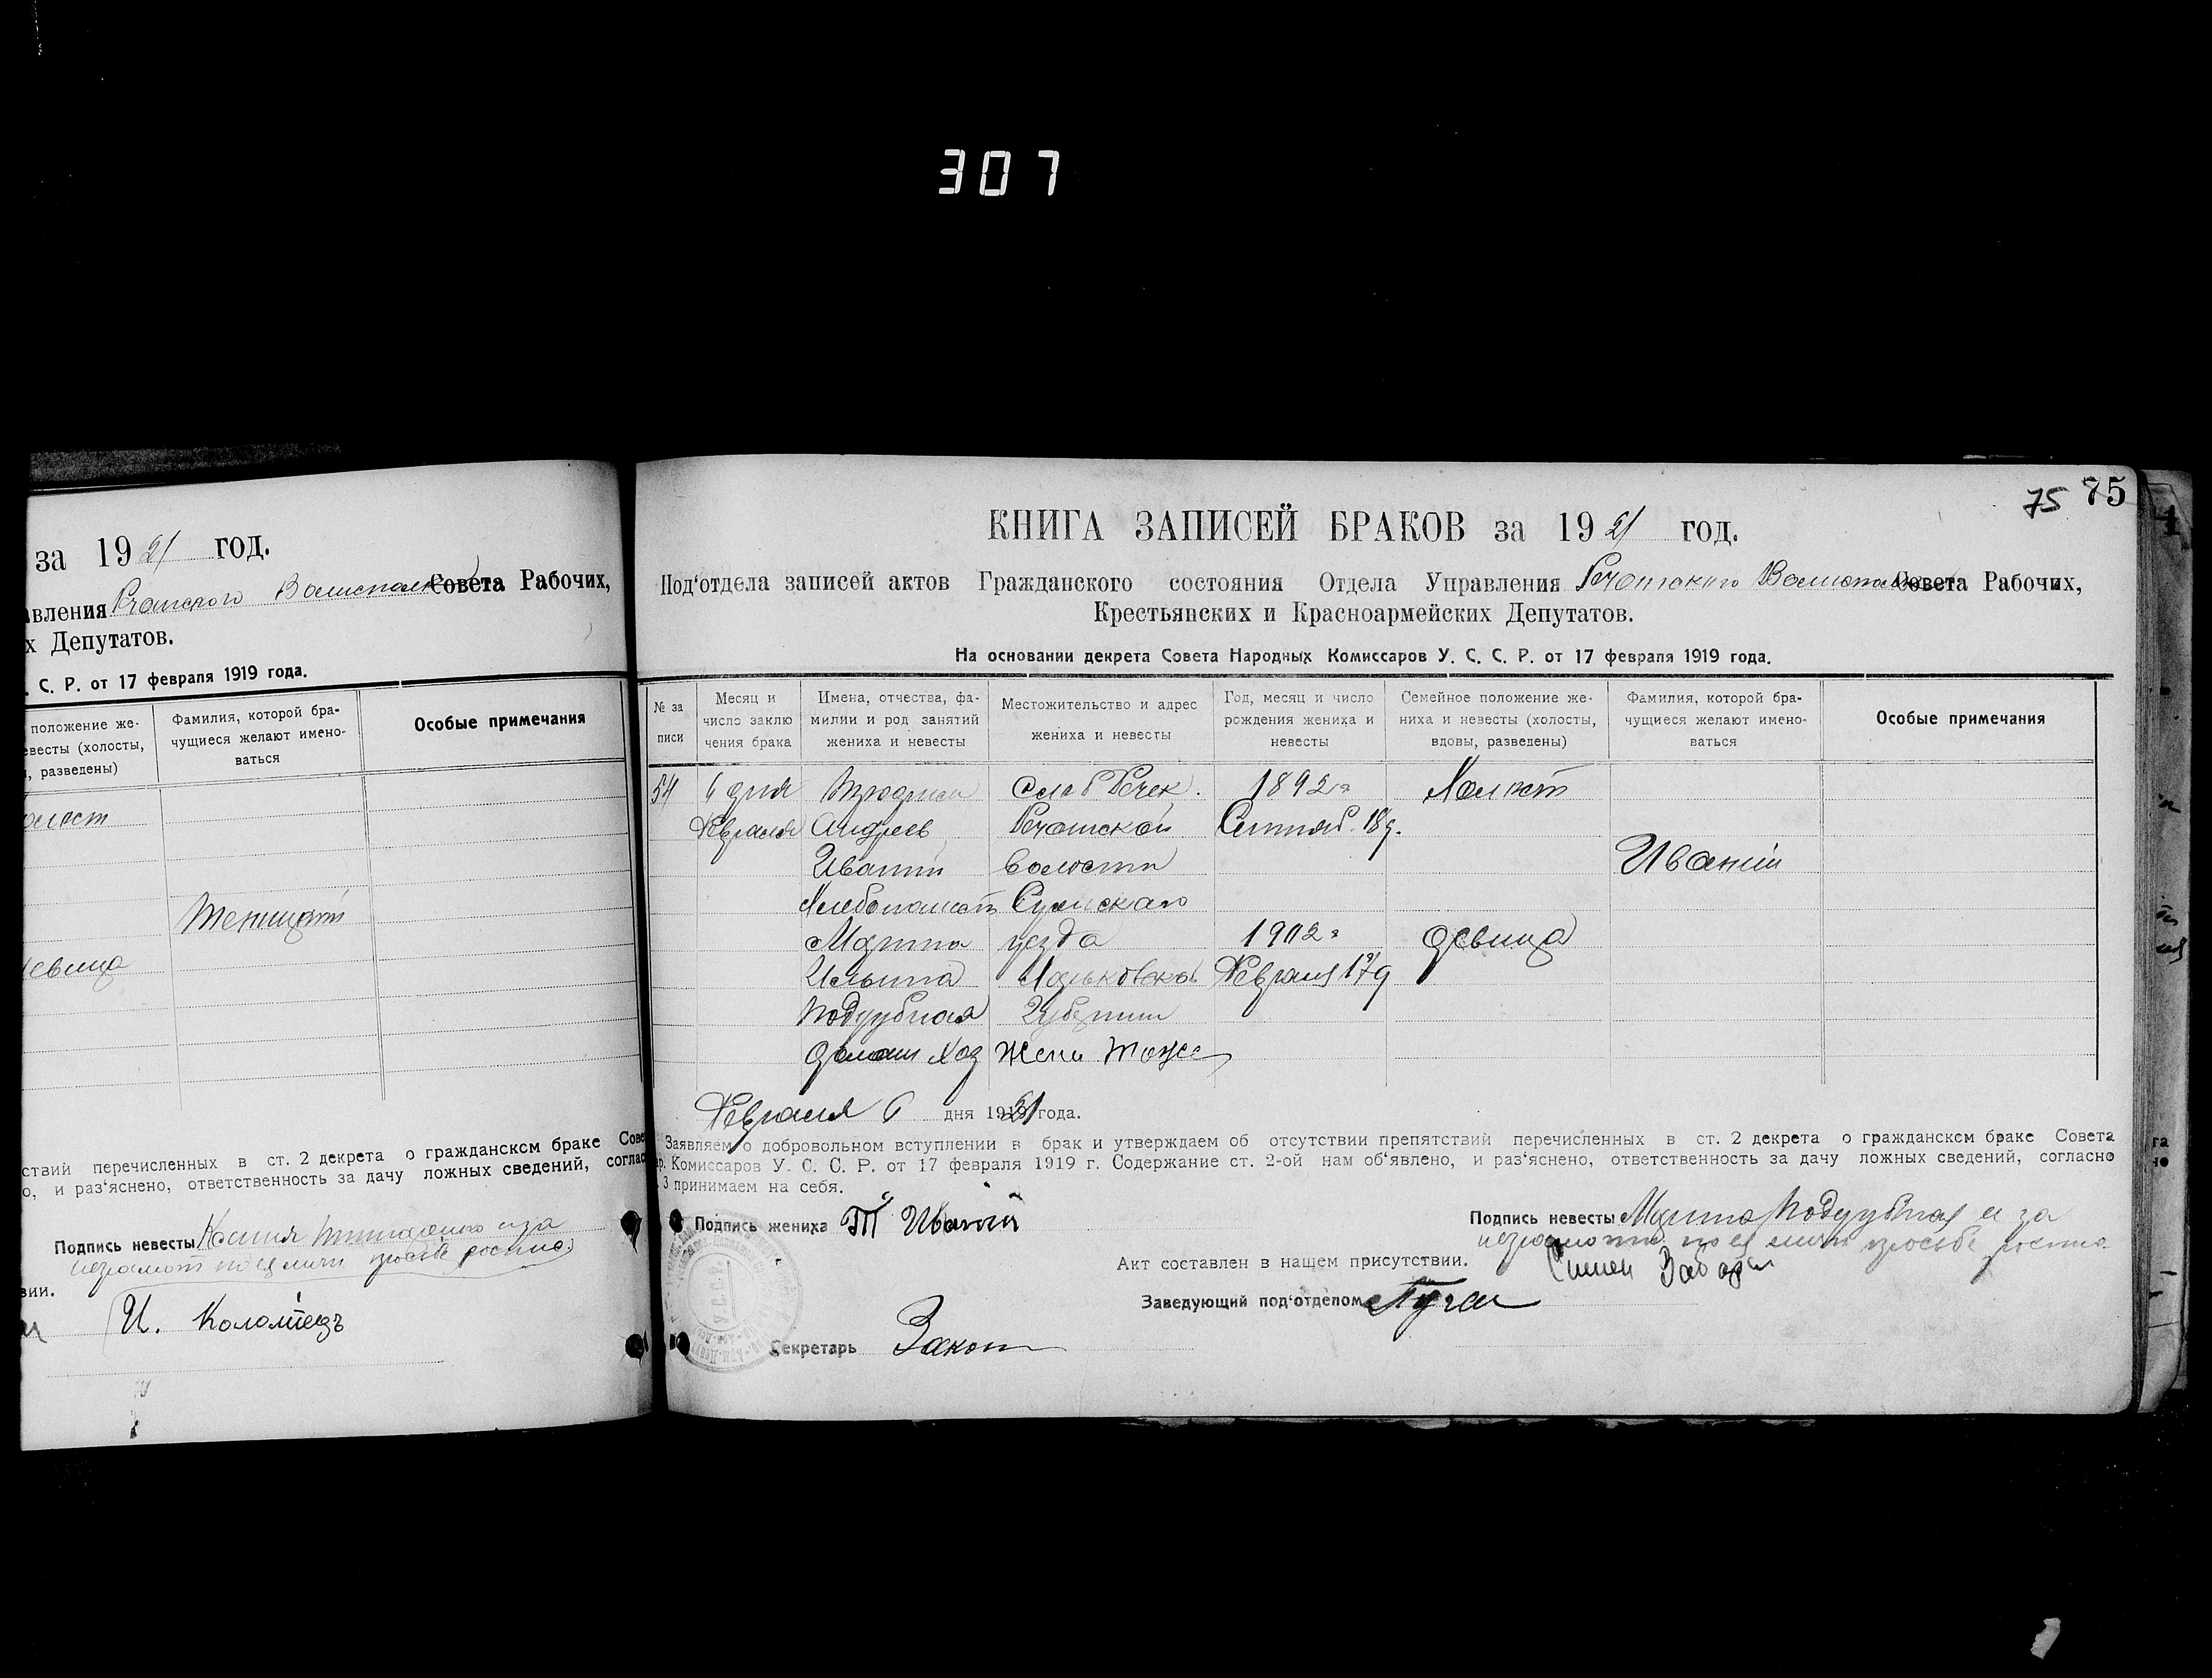 307
за 1921 год.
авления Речанского Волисполк Совета Рабочих,
х Депутатов.
. С. Р. от 17 февраля 1919 года.
положение же-
евесты (холосты,
, разведены)
Фамилия, которой бра-
чущиеся желают имено-
ваться
Особые примечания
олост
девица
ствий перечисленных в ст. 2 декрета о гражданском браке Сове
о, и раз‘яснено, ответственность за дачу ложных сведений, соглас
Подпись невесты Ксения за
неграмотн по ея личн просьбе роспис
вии.
И. Коломіецъ
75 75
КНИГА ЗАПИСЕЙ БРАКОВ за 1921 год.
Под‘отдела записей актов Гражданского состояния Отдела Управления Речанского Волисполк Совета Рабочих,
Крестьянских и Красноармейских Депутатов.
На основании декрета Совета Народных Комиссаров У. С. С. Р. от 17 февраля 1919 года.
№ за
писи
Месяц и
число заклю
чения брака
Имена, отчества, фа-
милии и род занятий
жениха и невесты
Местожительство и адрес
жениха и невесты
Год, месяц и число
рождения жениха и
невесты
Семейное положение же-
ниха и невесты (холосты,
вдовы, разведены)
Фамилия, которой бра-
чущиеся желают имено-
ваться
Особые примечания
54 6 дня Слоб Речек. 1892 г Холост
Февраля Андреев Речанской Сентяб. 18 д.
Иваній волости Иваній
Хлебопашест Сумскаго
Марина уезда 1902 г девица
Ильина Харьковской Февраля 17 д
Поддубная Губернии
домаш хоз Жени тоже
Февраля 6 дня 1921 года.
Заявляем о добровольном вступлении в брак и утверждаем об отсутствии препятствий перечисленных в ст. 2 декрета о гражданском браке Совета
р. Комиссаров У. С. С. Р. от 17 февраля 1919 г. Содержание ст. 2-ой нам об‘явлено, и раз‘яснено, ответственность за дачу ложных сведений, согласно
3 принимаем на себя.
Подпись жениха Т Иваній
Подпись невесты Марина Поддубная и за
неграмотн. по ея личн просьбе роспис
Акт составлен в нащем присутствии.
Заведующий под‘отделом
Секретарь